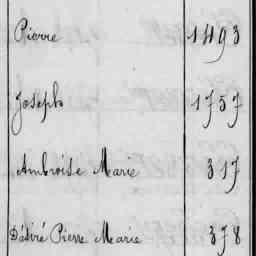 Pierre 1493
Joseph 1757
Ambroise Marie 317
Désiré Pierre Marie 378